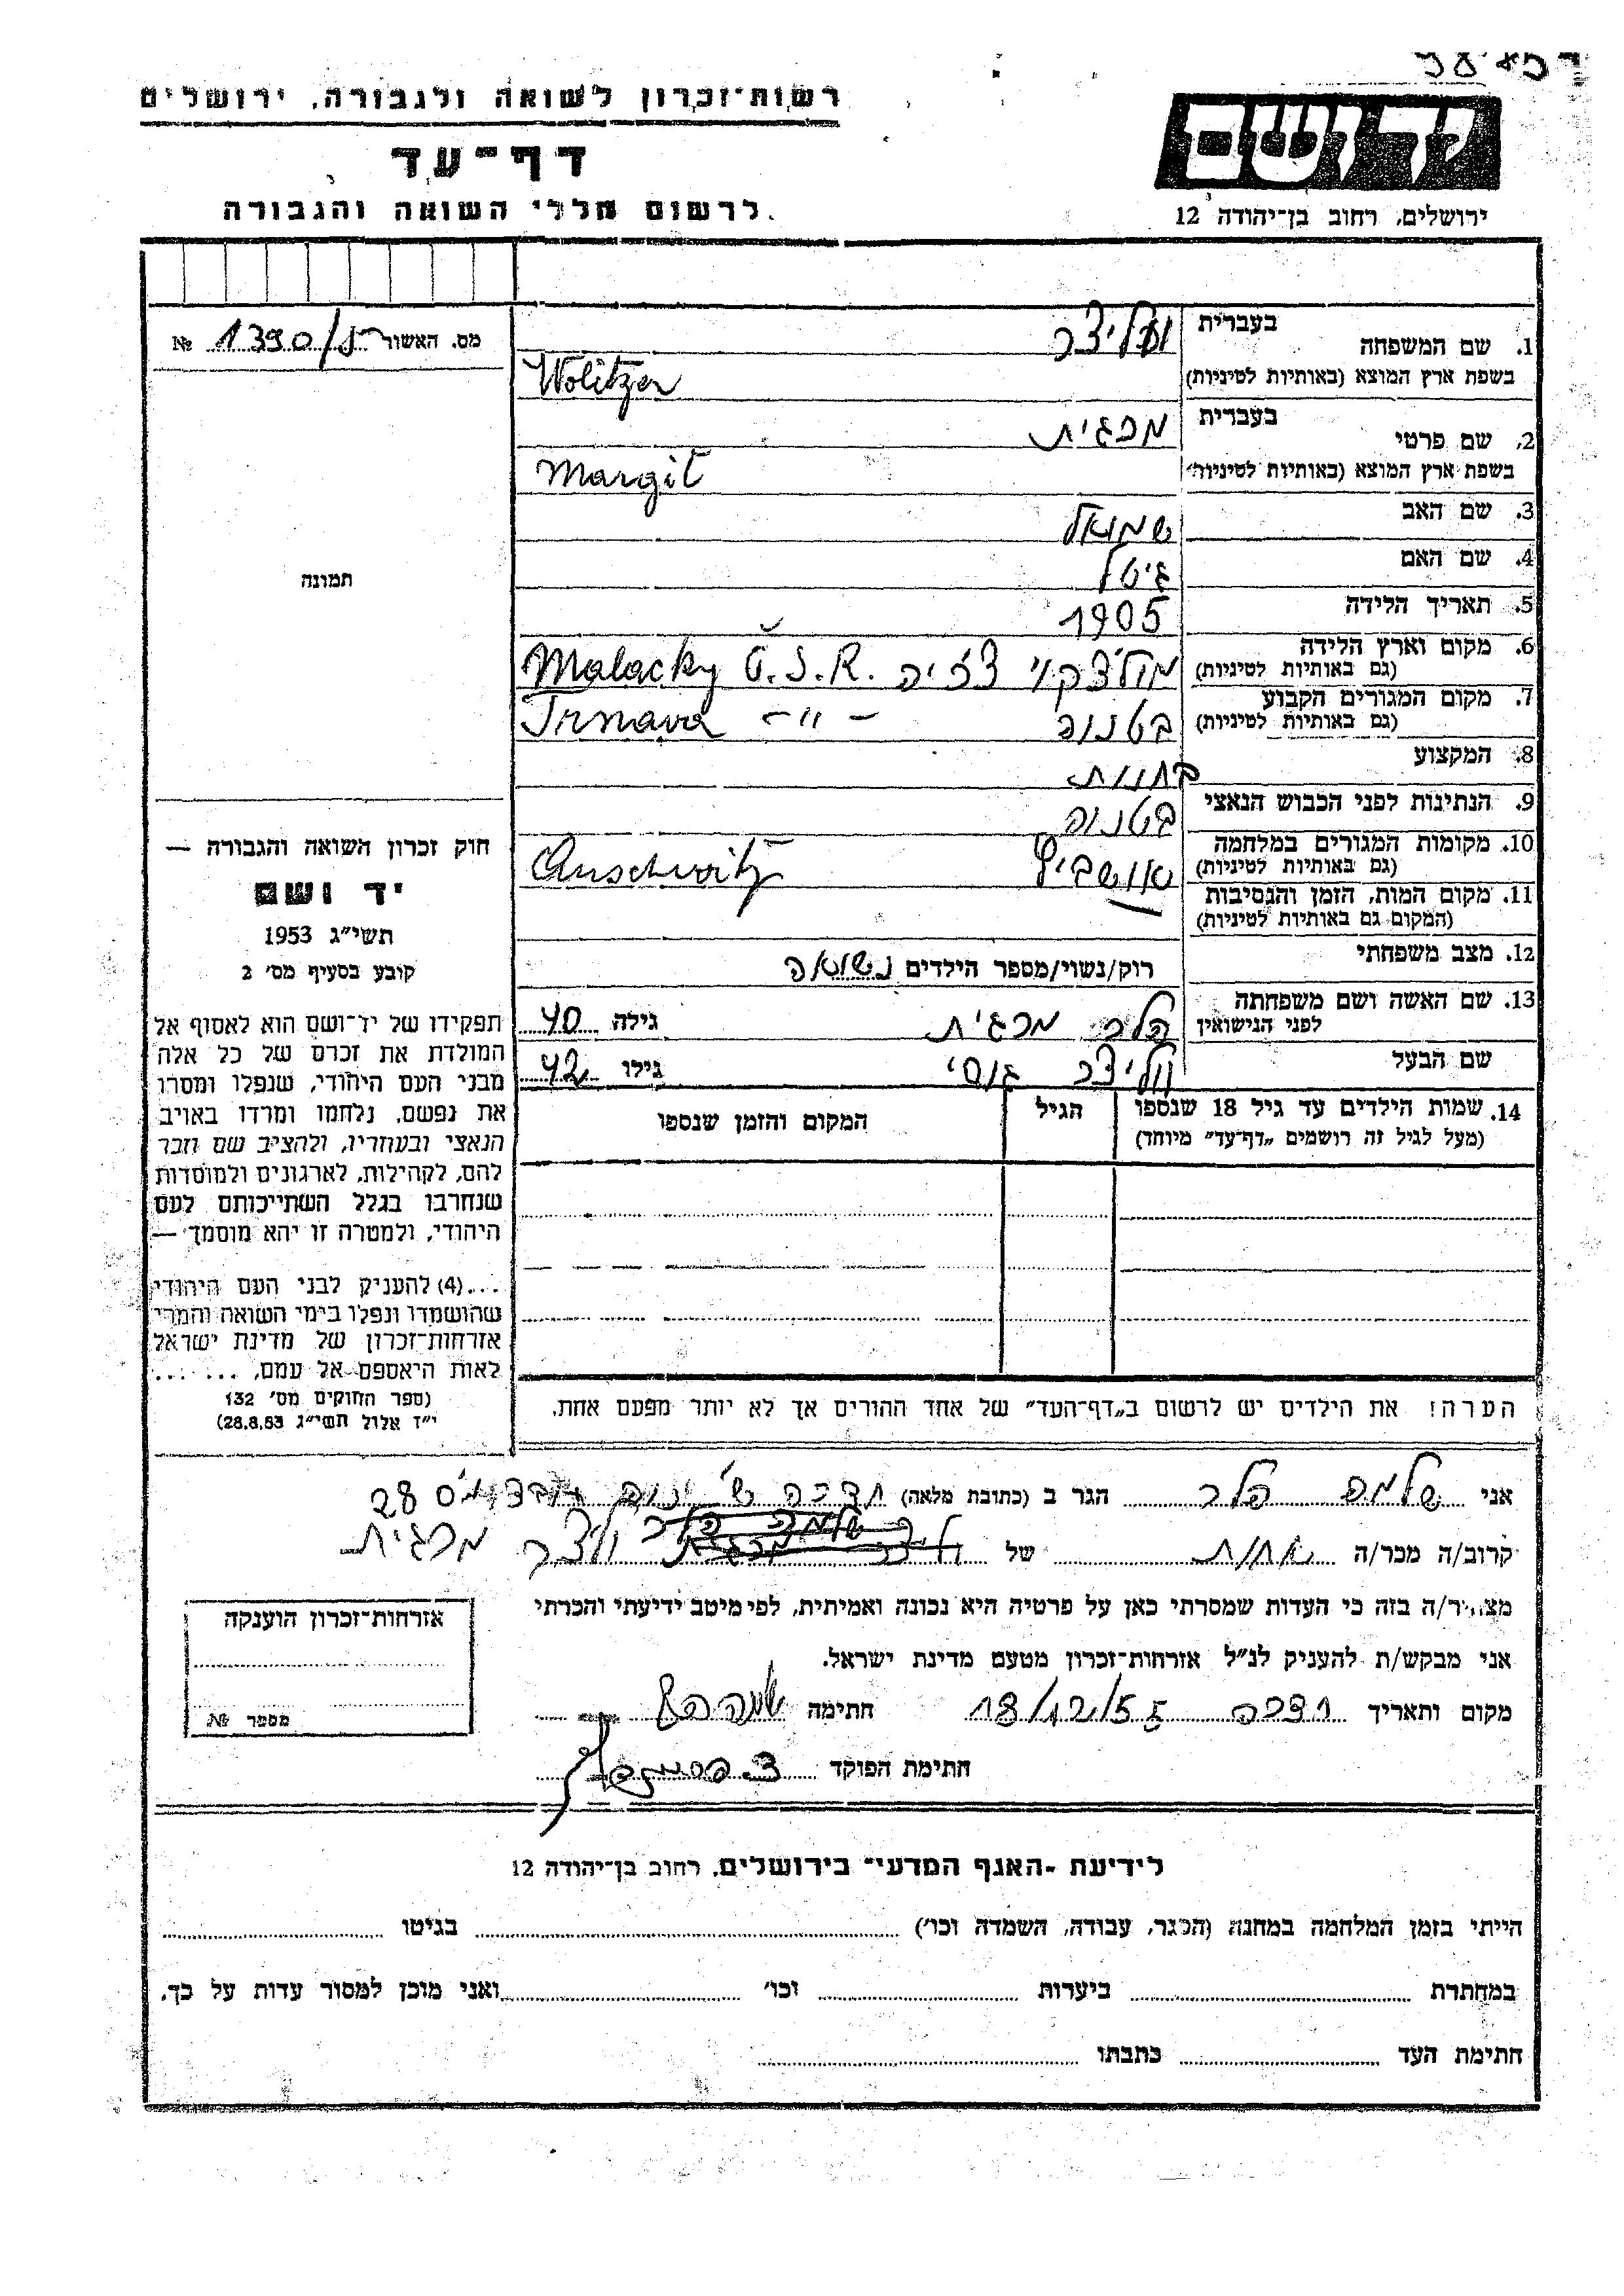 רשות־זכרון לשואה ולגבורה, ירושלים
דף־עד
לרשום חללי השואה והגבורה
יד ושם
ירושלים, רחוב בן־יהודה 12
מס. האשור № 1390/
תמונה
חוק זכרון השואה והגבורה —
יד ושם
תשי״ג 1953
קובע בסעיף מס׳ 2
תפקידו של יד־ושם הוא לאסוף אל
המולדת את זכרם של כל אלה
מבני העם היהודי, שנפלו ומסרו
את נפשם, נלחמו ומרדו באויב
הנאצי ובעוזריו, ולהציב שם וזכר
להם, לקהילות, לארגונים ולמוסדות
שנחרבו בגלל השתייכותם לעם
היהודי, ולמטרה זו יהא מוסמך —
...(4) להעניק לבני העם היהודי
שהושמדו ונפלו בימי השואה והמרי
אזרחות־זכרון של מדינת ישראל
לאות היאספם אל עמם. ... ...
(ספר החוקים מס׳ 132
י״ז אלול תשי״ג 28.8.53)
1. שם המשפחה בעברית
בשפת ארץ המוצא (באותיות לטיניות) Wolitzer
2. שם פרטי בעברית מרגית
בשפת ארץ המוצא (באותיות לטיניות) Margit
3. שם האב שמואל
4. שם האם גיטל
5. תאריך הלידה 1905
6. מקום וארץ הלידה
(גם באותיות לטיניות) Malacky Č.S.R.
7. מקום המגורים הקבוע
(גם באותיות לטיניות) Trnava -"-
8. המקצוע
9. הנתינות לפני הכבוש הנאצי
10. מקומות המגורים במלחמה
(גם באותיות לטיניות) אושביץ Auschwitz
11. מקום המות, הזמן והנסיבות
(המקום גם באותיות לטיניות)
12. מצב משפחתי רוק/נשוי/מספר הילדים נשואה
13. שם האשה ושם משפחתה
לפני הנישואין הלר מרגית גילה 40
שם הבעל וליצר גילו 42
14. שמות הילדים עד גיל 18 שנספו הגיל המקום והזמן שנספו
(מעל לגיל זה רושמים „דף־עד״ מיוחד)
הערה! את הילדים יש לרשום ב„דף־העד״ של אחד ההורים אך לא יותר מפעם אחת.
אני שלמה הלר הגר ב (כתובת מלאה) חדרה 28
קרוב/ה מכר/ה אחות של וליצר מרגית
מצהיר/ה בזה כי העדות שמסרתי כאן על פרטיה היא נכונה ואמיתית, לפי מיטב ידיעתי והכרתי
אני מבקש/ת להעניק לנ״ל אזרחות־זכרון מטעם מדינת ישראל.
מקום ותאריך חדרה 18/12/55 חתימה
חתימת הפוקד
אזרחות־זכרון הוענקה
מספר №
לידיעת ־האגף המדעי־ בירושלים, רחוב בן־יהודה 12
הייתי בזמן המלחמה במחנה (הסגר, עבודה, השמדה וכו׳) בגיטו
במחתרת ביערות וכו׳ ואני מוכן למסור עדות על כך.
חתימת העד כתבתו